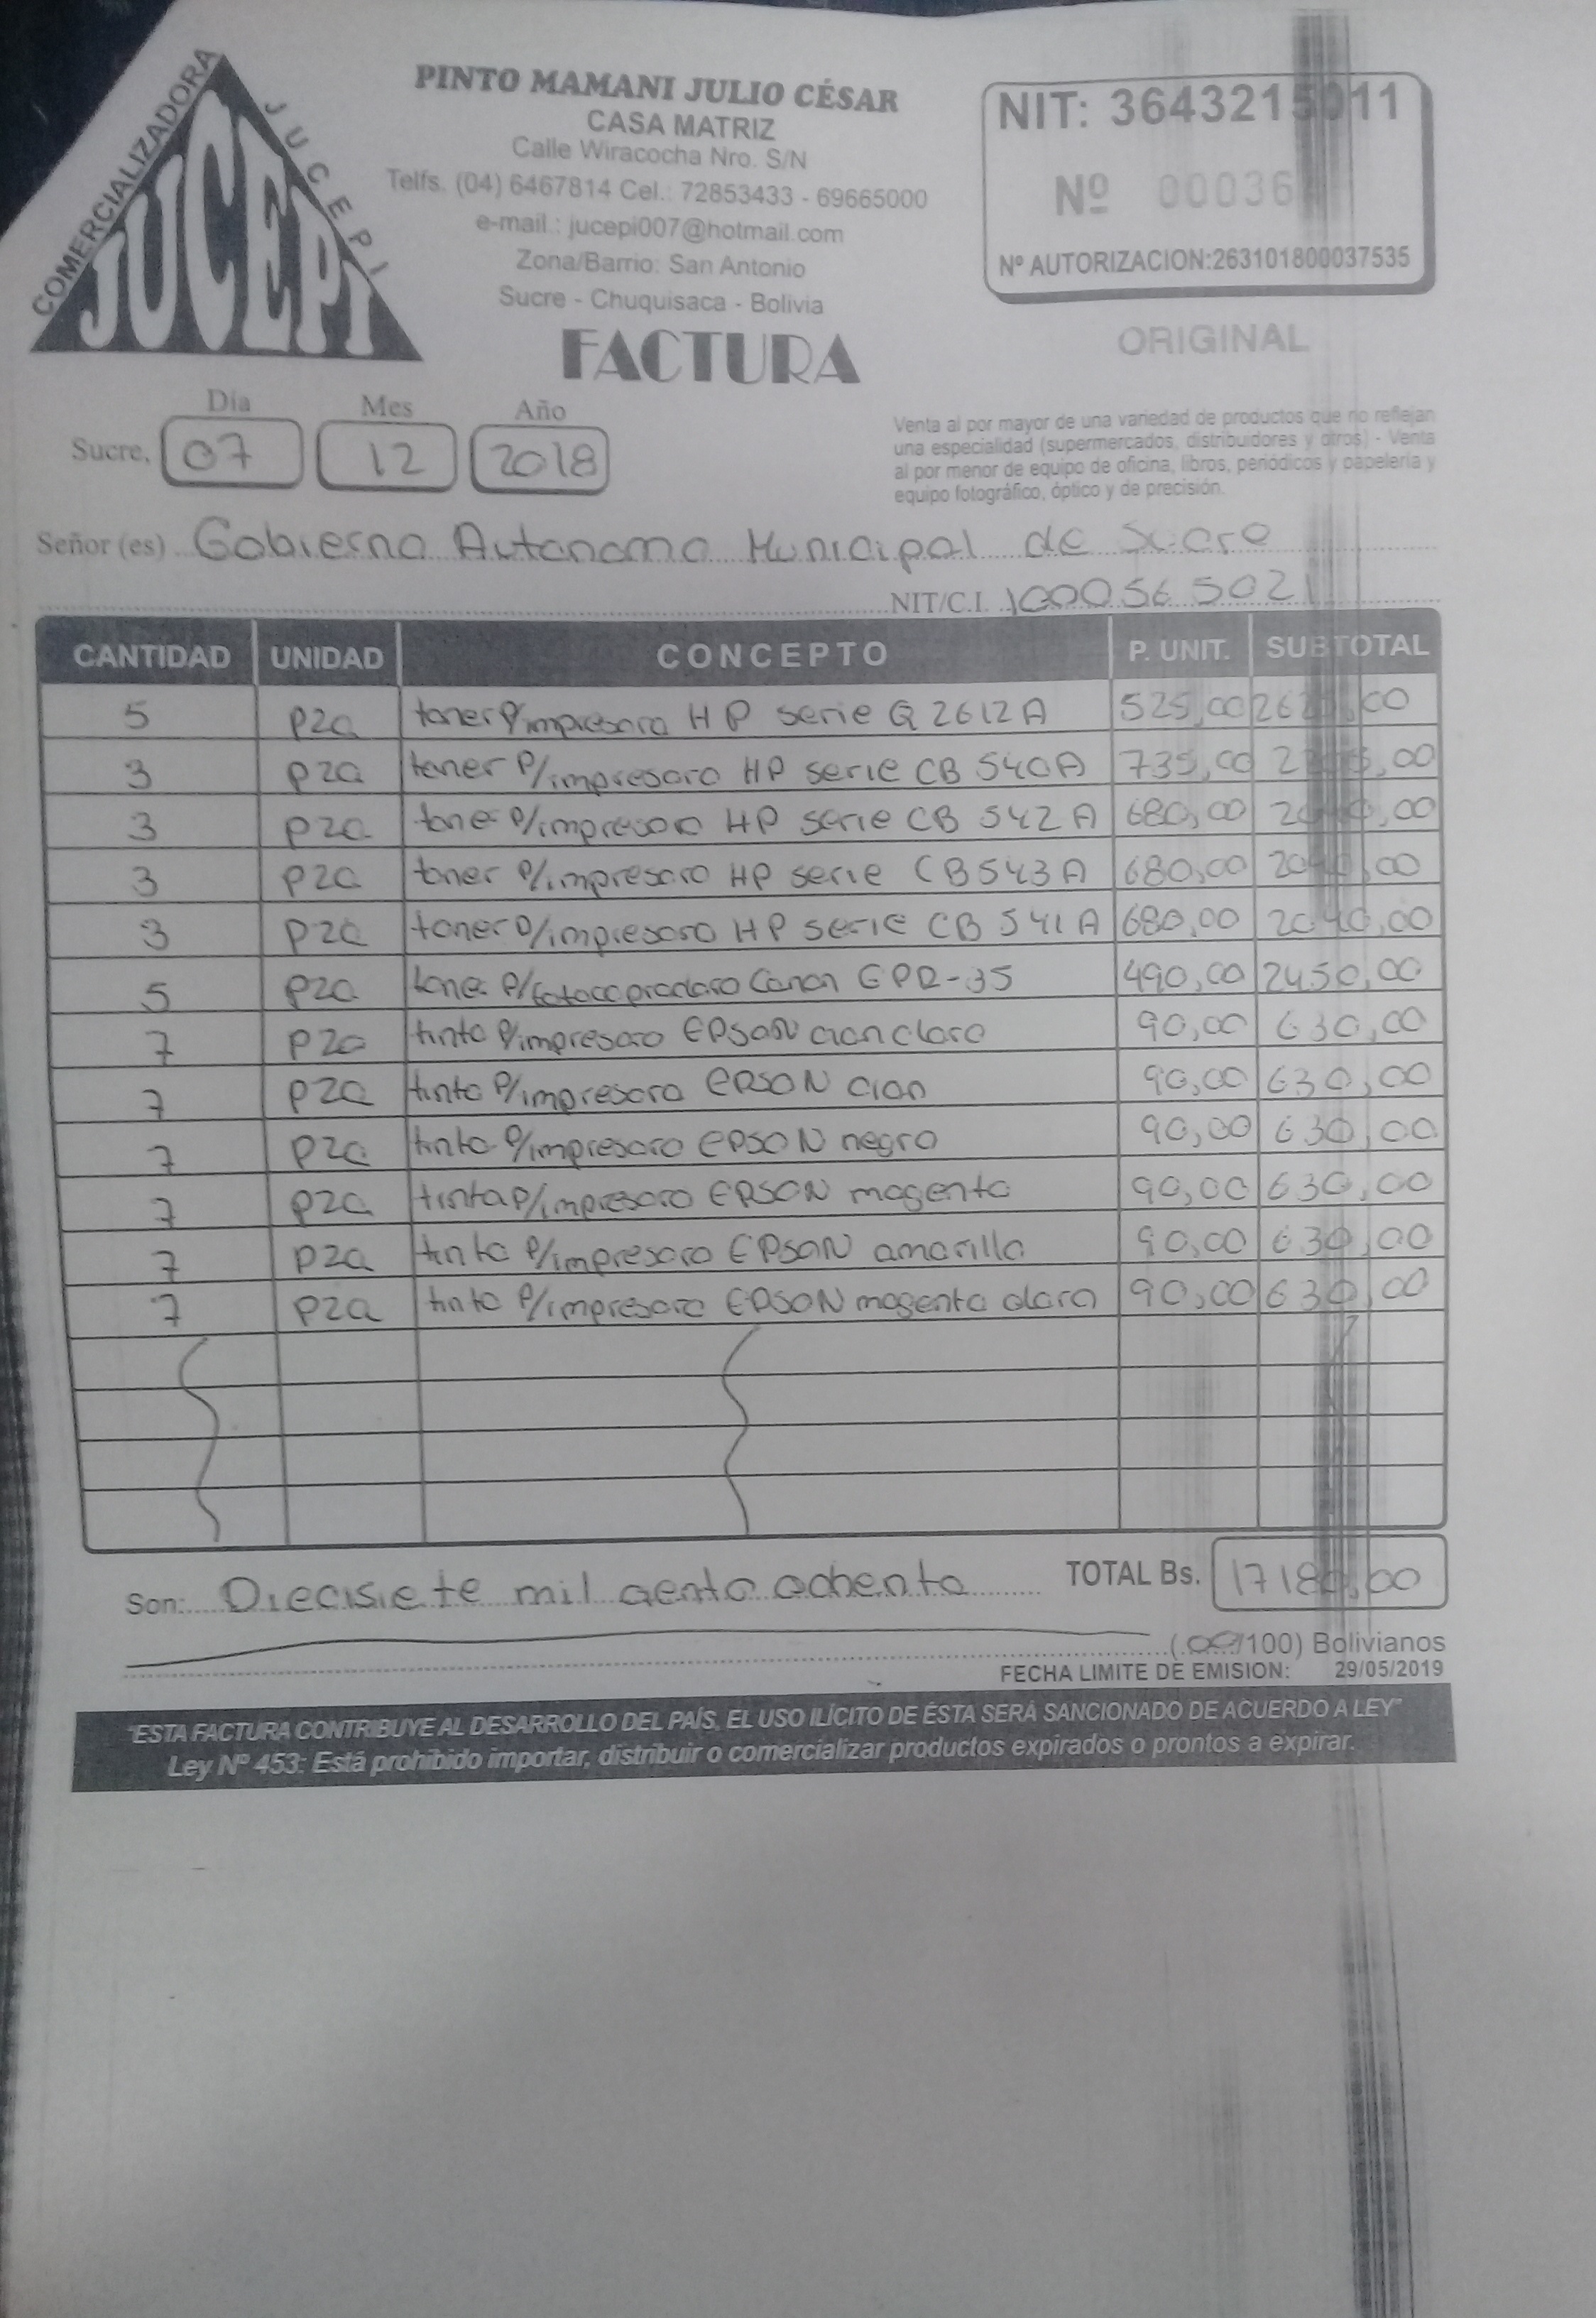 COMERCIALIZADORA
JUCEPI
JUCEPI
PINTO MAMANI JULIO CÉSAR
CASA MATRIZ
Calle Wiracocha Nro. S/N
Telfs. (04) 6467814 Cel.: 72853433 - 69665000
e-mail.: jucepi007@hotmail.com
Zona/Barrio: San Antonio
Sucre - Chuquisaca - Bolivia
FACTURA
NIT: 3643215011
Nº 00036
Nº AUTORIZACION:263101800037535
ORIGINAL
Venta al por mayor de una variedad de productos que no reflejan
una especialidad (supermercados, distribuidores y otros) - Venta
al por menor de equipo de oficina, libros, periódicos y papelería y
equipo fotográfico, óptico y de precisión.
Día Mes Año
Sucre, 07 12 2018
Señor (es) Gobierno Autonomo Municipal de Sucre
NIT/C.I. 1000565021
CANTIDAD UNIDAD CONCEPTO P. UNIT. SUBTOTAL
5 pza toner P/impresora HP serie Q2612A 525,00 2625,00
3 pza toner P/impresora HP serie CB540A 735,00 2205,00
3 pza toner P/impresora HP serie CB542A 680,00 2040,00
3 pza toner P/impresora HP serie CB543A 680,00 2040,00
3 pza toner P/impresora HP serie CB541A 680,00 2040,00
5 pza toner P/fotocopiadora Canon GPR-35 490,00 2450,00
7 pza tinta P/impresora EPSON cian claro 90,00 630,00
7 pza tinta P/impresora EPSON cian 90,00 630,00
7 pza tinta P/impresora EPSON negro 90,00 630,00
7 pza tinta P/impresora EPSON magenta 90,00 630,00
7 pza tinta P/impresora EPSON amarillo 90,00 630,00
7 pza tinta P/impresora EPSON magenta claro 90,00 630,00
Son: Diecisiete mil ciento ochenta TOTAL Bs. 17180,00
(00/100) Bolivianos
FECHA LIMITE DE EMISION: 29/05/2019
"ESTA FACTURA CONTRIBUYE AL DESARROLLO DEL PAÍS, EL USO ILÍCITO DE ÉSTA SERÁ SANCIONADO DE ACUERDO A LEY"
Ley Nº 453: Está prohibido importar, distribuir o comercializar productos expirados o prontos a expirar.